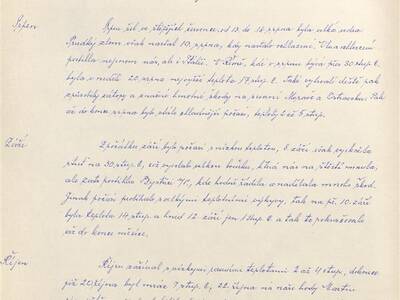 Srpen
Srpen šel ve šlépějích července, od 13. do 16. srpna byla velká vedra.
Prudký zlom však nastal 19. srpna, kdy nastalo ochlazení. Vlna ochlazení
postihla nejenom nás, ale i Itálii. V Římě, kde v srpnu bývá přes 30 stup. C
byla v neděli 20. srpna nejvyšší teplota 17 stup. C. Také vytrvalé deště pak
způsobily zátopy a značné hmotné škody na severní Moravě a Ostravsku. Pak
až do konce srpna bylo stále chladnější počasí, teploty 2 až 5 stup.
Září
Z počátku září bylo počasí s nízkou teplotou, 5. září však vyskočila
rtuť na 30 stup. C, což vyvolalo velkou bouřku, která nás na štěstí minula,
ale zato postihla Bystrici n/P., kde hodně řádila a nadělala mnoho škod.
Jinak počasí probíhalo s velkými teplotními výkyvy, tak na př. 10. září
byla teplota 14 stup. a hned 12. září jen 1 stup. C a tak to pokračovalo
až do konce měsíce.
Říjen
Říjen začínal s nízkými ranními teplotami 2 až 4 stup., dokonce
již 22. října byl mráz 7 stup. C, 22. října na naše hody Martin